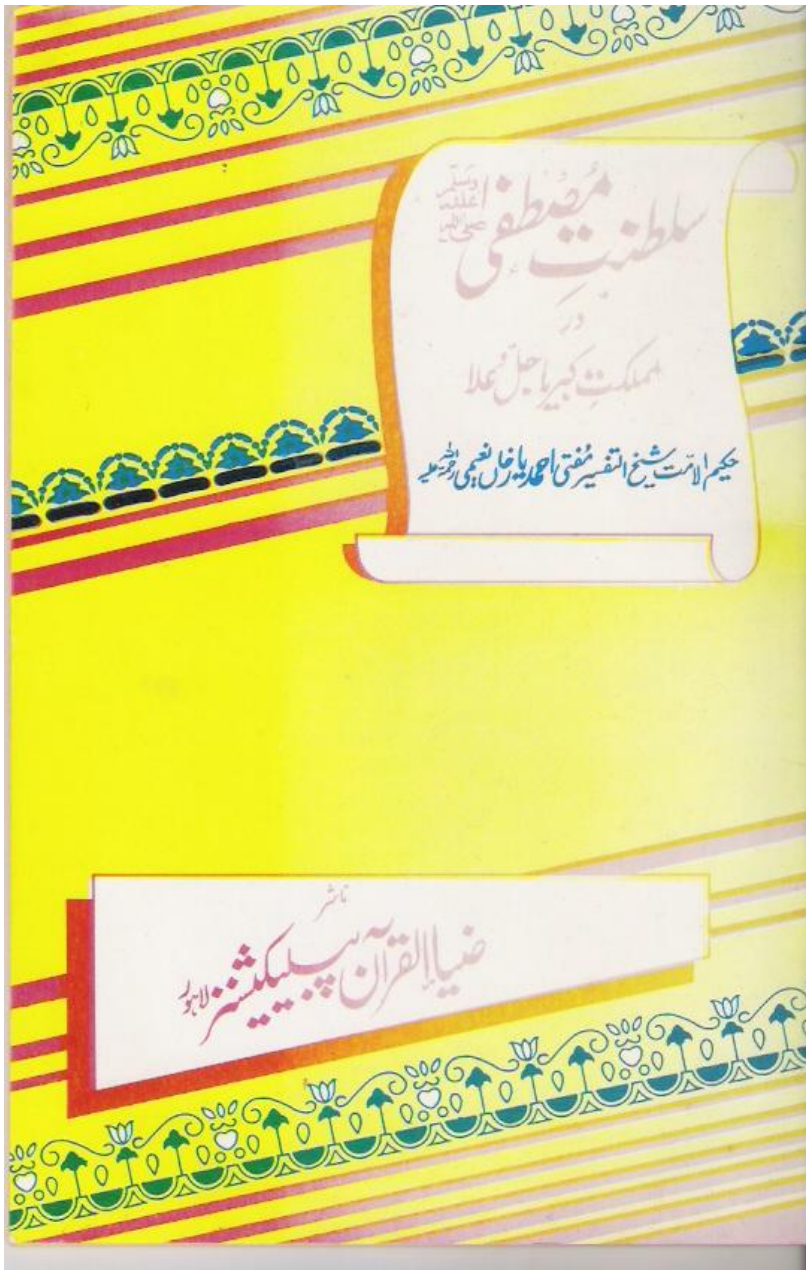 سلطنتِ مُصطفٰی صلی اللہ علیہ وسلم
در
مملکتِ کبریا جل و علا
حکیم الامت شیخ التفسیر مُفتی احمد یار خاں نعیمی رحمۃ اللہ علیہ
ناشر
ضیاء القرآن پبلیکیشنز لاہور